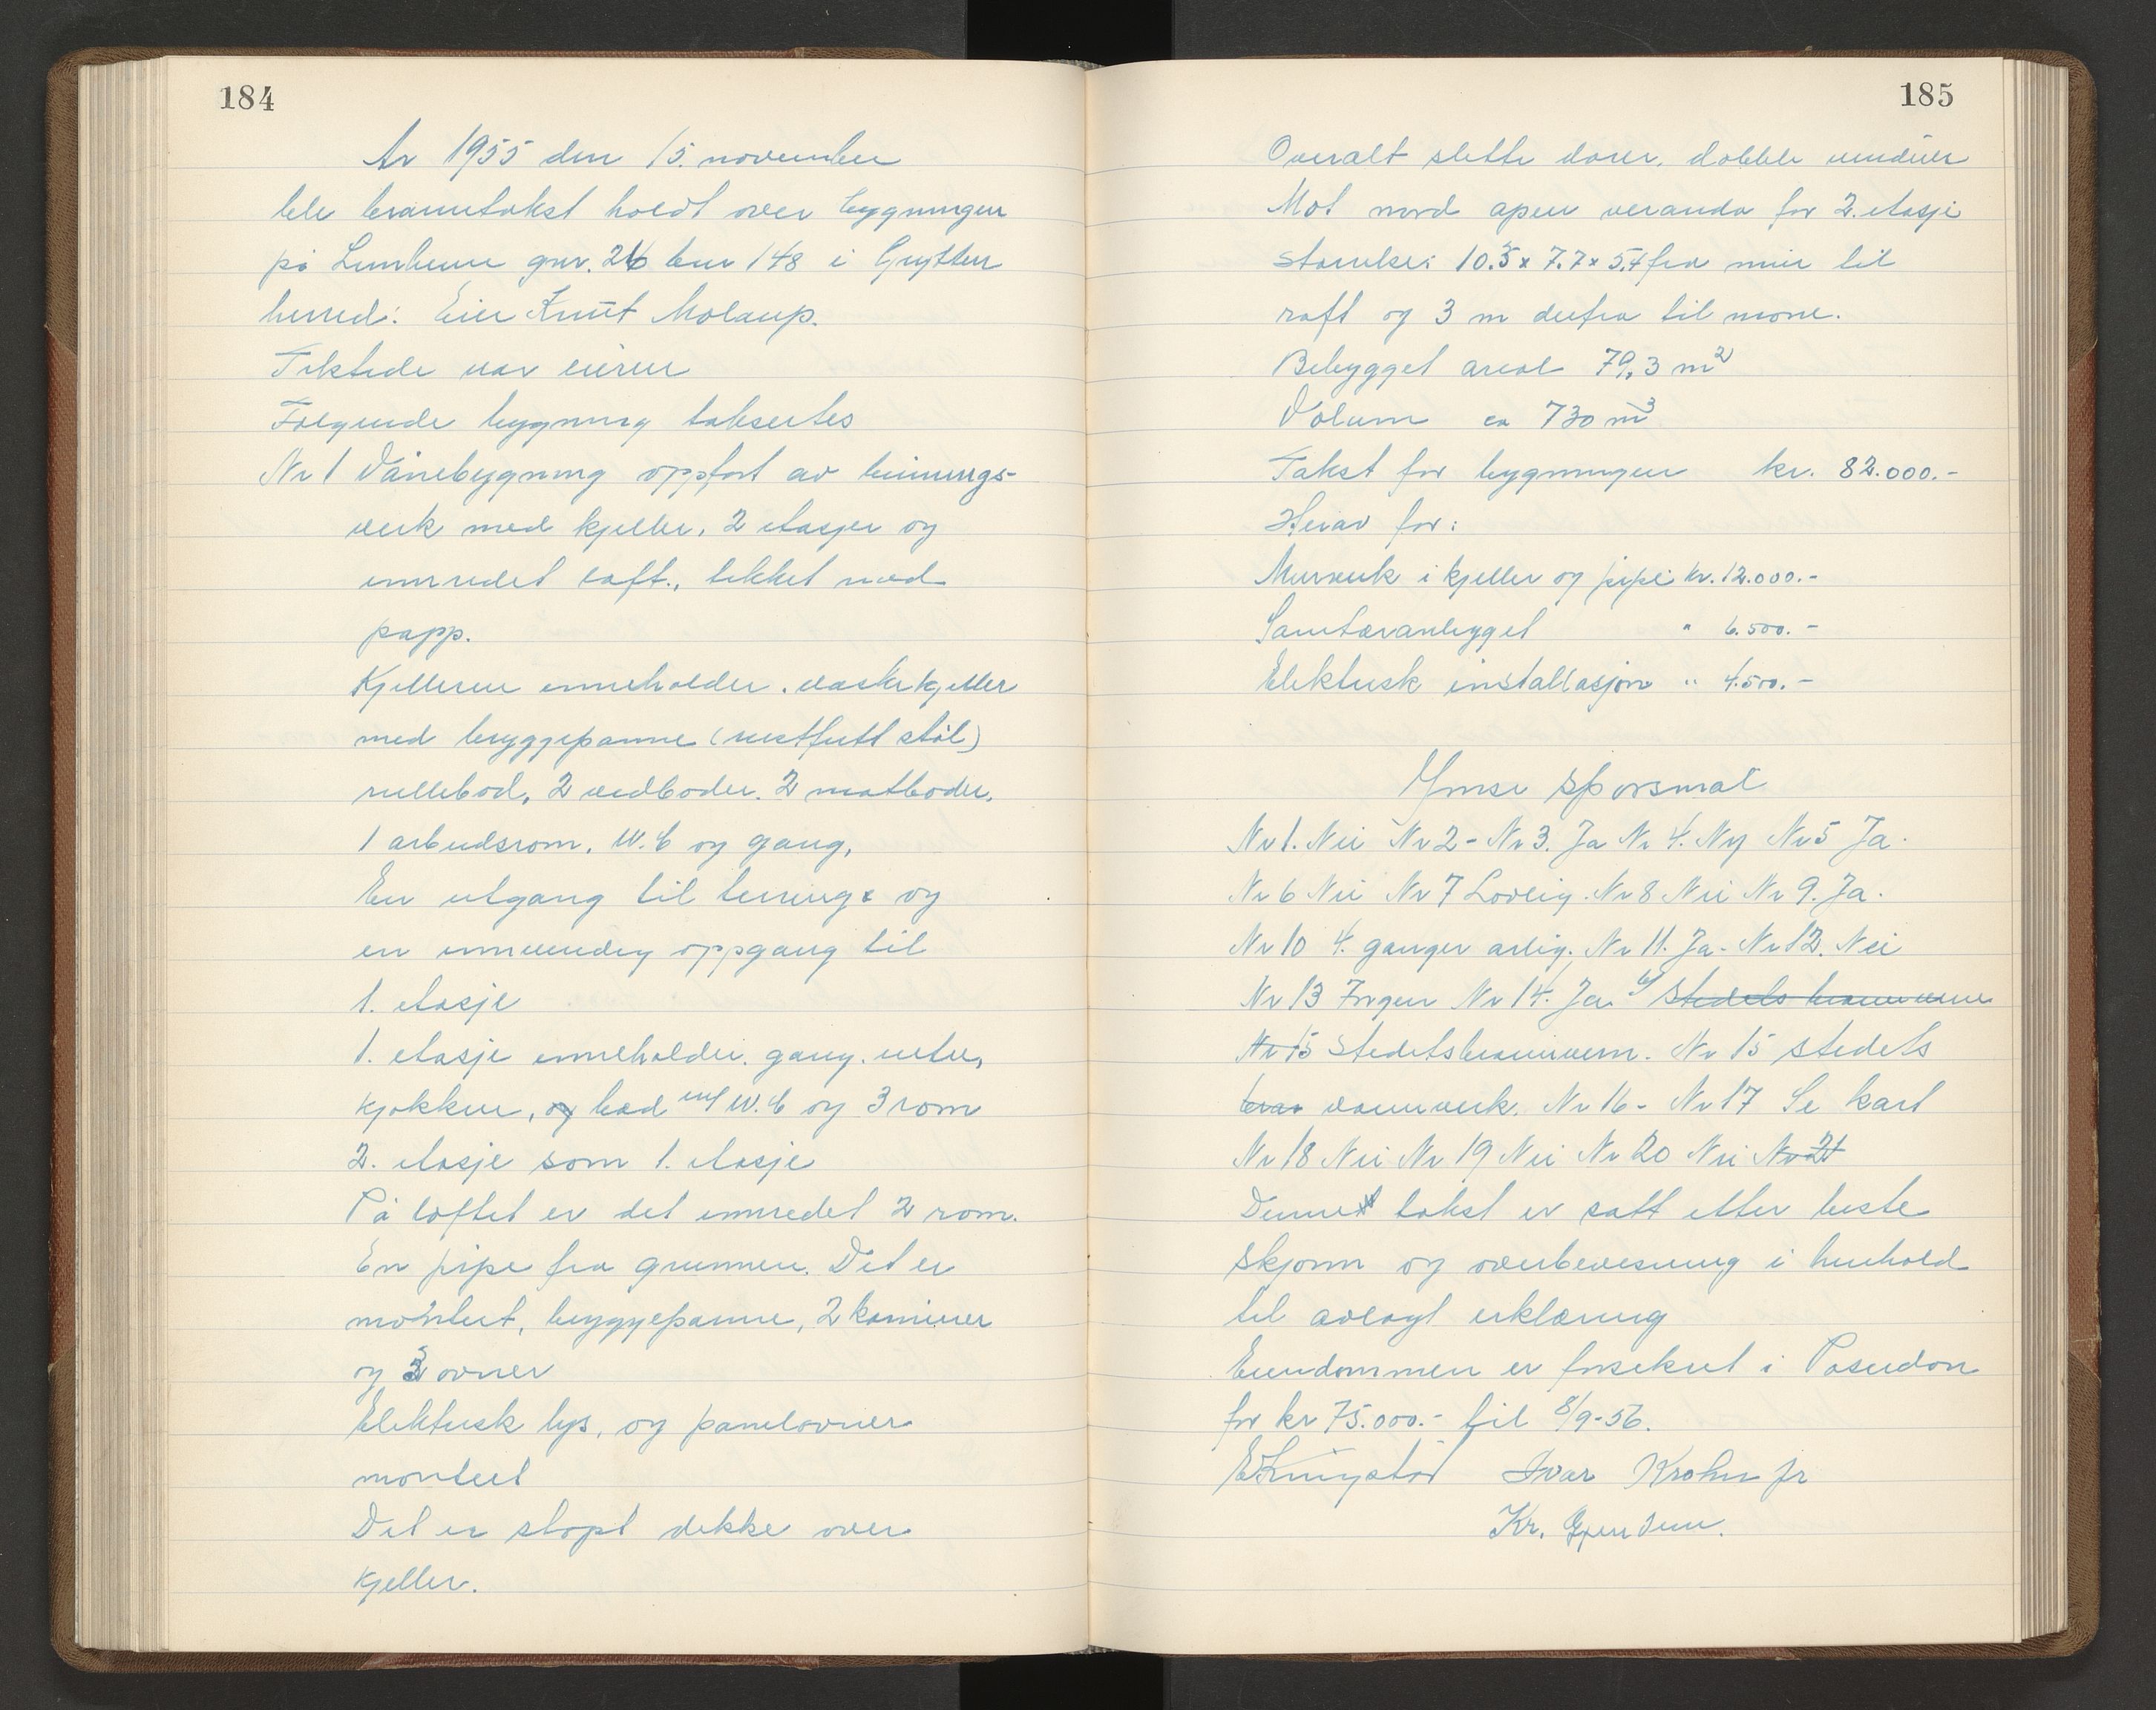 184
År 1955 den 15. november
ble branntakst holdt over bygningen
på Lunheim gnr. 26 bnr 148 i Grytten
herred: Eier Knut Molaup.
Tilstede var eieren
Følgende bygning taksertes
Nr 1 Vånebygning oppført av binnings-
verk med kjeller, 2 etasjer og
innredet loft., tekket med
papp.
Kjelleren inneholder. vaskekjeller
med bryggepanne (rustfritt stål)
rullebod, 2 vedboder. 2 matboder.
1 arbeidsrom, W.C og gang,
En utgang til terreng og
en innvendig oppgang til
1. etasje
1. etasje inneholder. gang. entre,
kjøkken, og bad m/ W.C og 3 rom
2. etasje som 1. etasje
På loftet er det innredet 2 rom.
En pipe fra grunnen. Det er
montert, bryggepanne, 2 kaminer
og 3 ovner
Elektrisk lys, og panelovner
montert
Det er støpt dekke over
kjeller.
185
Overalt slette dører, doble vinduer
Mot nord åpen veranda for 2. etasje
Størrelse: 10.3 x 7.7 x 5,4 fra mur til
raft og 3 m derfra til møne.
Bebygget areal 79,3 m²
Volum ca 730 m³
Takst for bygningen kr. 82.000.-
Herav for:
Murverk i kjeller og pipe kr. 12.000.-
Sanitæranlegget " 6.500.-
Elektrisk installasjon " 4.500.-
Ymse spørsmål
Nr 1. Nei Nr 2 - Nr 3. Ja Nr 4. Ny Nr 5 Ja.
Nr 6 Nei Nr 7 Lovlig. Nr 8 Nei Nr 9. Ja.
Nr 10 4. ganger årlig. Nr 11. Ja. Nr 12. Nei
Nr 13 Ingen Nr 14. Ja. stedets brannvern
Nr 15 stedets brannvern. Nr 15 stedets
bran vannverk. Nr 16 - Nr 17 Se kart
Nr 18 Nei Nr 19 Nei Nr 20 Nei Nr 21
Denne takst er satt etter beste
skjønn og overbevisning i henhold
til avlagt erklæring
Eiendommen er forsikret i Poseidon
for kr 75.000.- til 8/9-56.
Ivar Krohn jr
Kr.